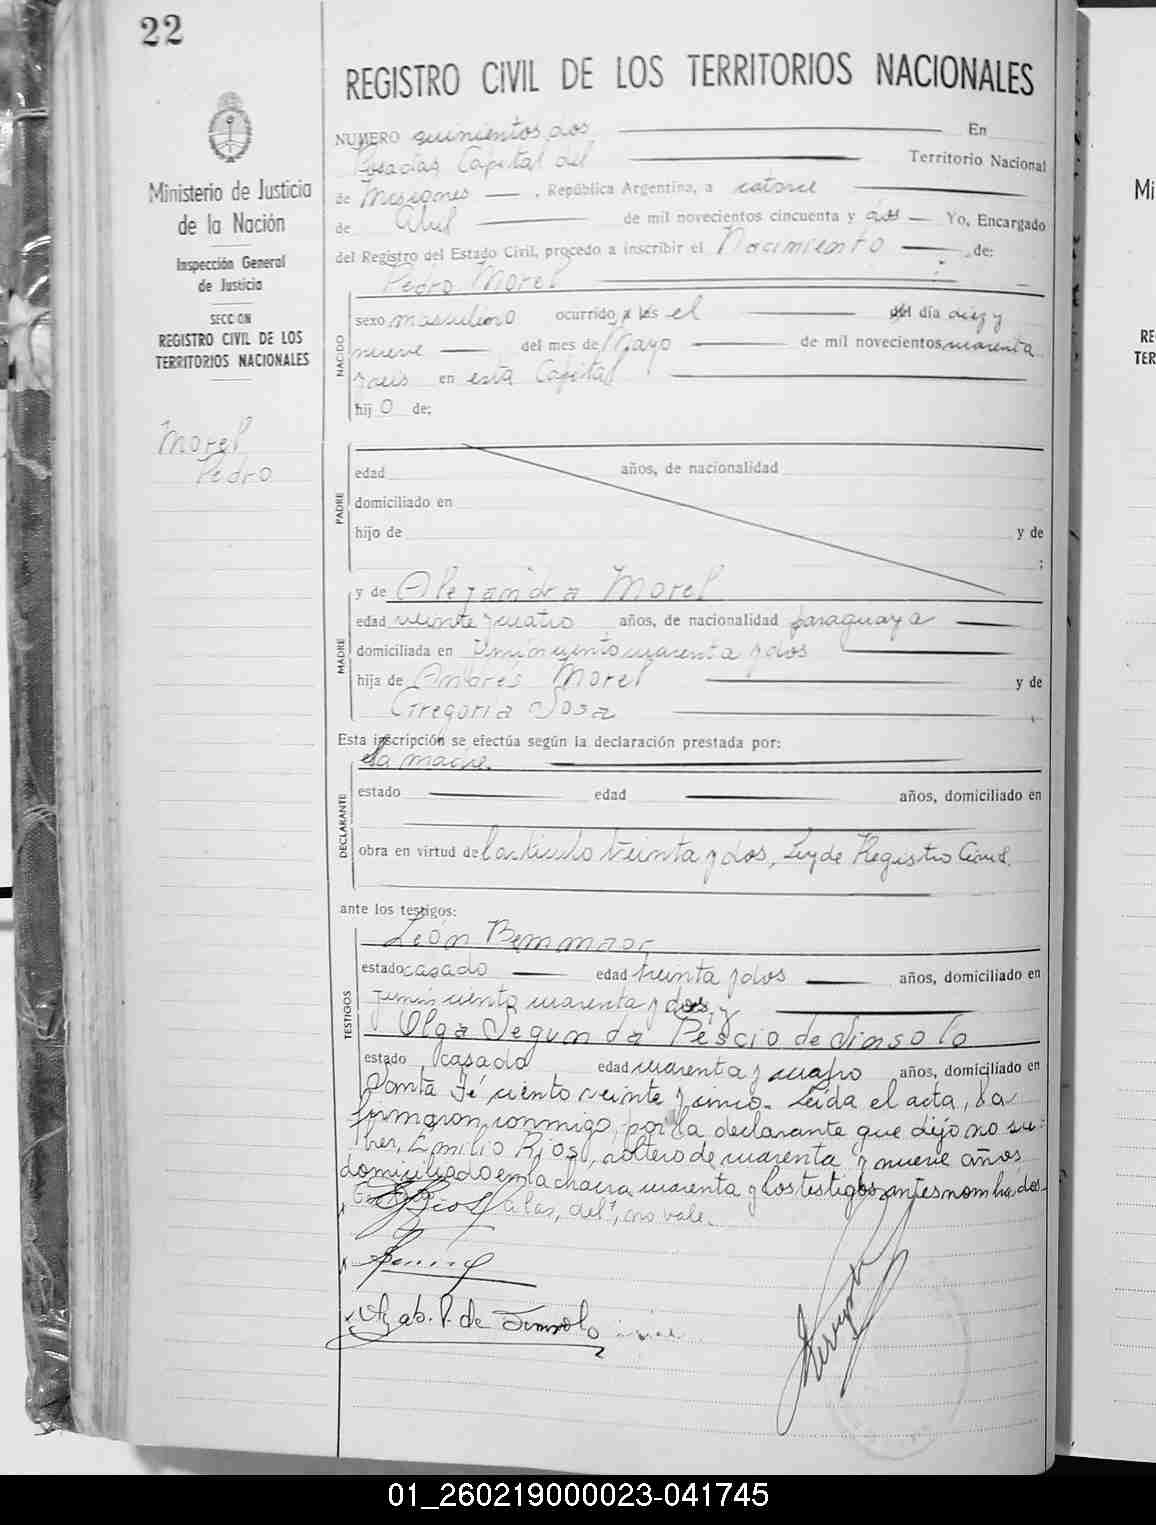 22
REGISTRO CIVIL DE LOS TERRITORIOS NACIONALES
Ministerio de Justicia
de la Nación
Inspección General
de Justicia
SECCION
REGISTRO CIVIL DE LOS
TERRITORIOS NACIONALES
Morel
Pedro
NUMERO quinientos dos En
Posadas Capital del Territorio Nacional
de Misiones , República Argentina, a catorce
de Abril de mil novecientos cincuenta y dos Yo, Encargado
del Registro del Estado Civil, procedo a inscribir el Nacimiento de:
Pedro Morel
NACIDO
sexo masculino ocurrido a las el del día diez y
nueve del mes de Mayo de mil novecientos cuarenta
y seis en esta Capital
hij o de:
PADRE
edad años, de nacionalidad
domiciliado en
hijo de y de
;
MADRE
y de Alejandra Morel
edad veinte y cuatro años, de nacionalidad paraguaya
domiciliada en Junin ciento cuarenta y dos
hija de Andrés Morel y de
Gregoria Sosa
Esta inscripción se efectúa según la declaración prestada por:
la madre.
DECLARANTE
estado edad años, domiciliado en
obra en virtud del articulo treinta y dos, Ley de Registro Civil.
ante los testigos:
TESTIGOS
León Bemmaor
estado casado edad treinta y dos años, domiciliado en
Junin ciento cuarenta y dos, y
Olga Segunda Pescio de Simsolo
estado casada edad cuarenta y cuatro años, domiciliado en
Santa Fé ciento veinte y cinco. Leida el acta, la
firmaron conmigo, por la declarante que dijo no sa-
ber, Emilio Rios, soltero de cuarenta y nueve años
domiciliado en la chacra cuarenta y los testigos antes nombrados.
a las, del, no vale.
Olga P. de Simsolo
Mi
RE
TER
01_260219000023-041745